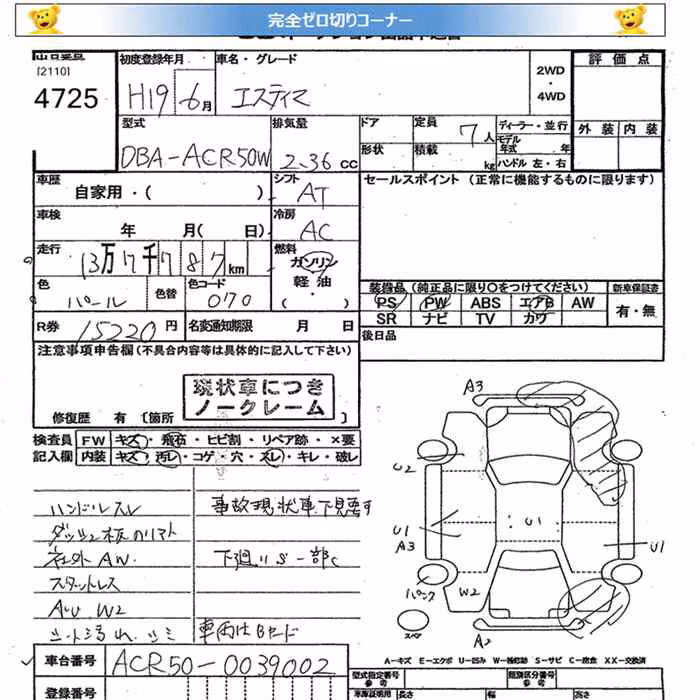 完全ゼロ切りコーナー
[2110]
4725
初度登録年月
H19 6月
車名・グレード
エスティマ
2WD
・
4WD
評価点
外装 内装
型式
DBA-ACR50W
排気量
2.36 cc
ドア
形状
定員 7人
積載 kg
ディーラー・並行
モデル
年式 年
ハンドル 左・右
車歴
自家用・( )
シフト
AT
セールスポイント(正常に機能するものに限ります)
車検
年 月( 日)
冷房
AC
走行
13万7千787km
燃料
ガソリン
軽油
( ・ )
色
パール
色替
色コード
070
装備品(純正品に限り○をつけてください)
PS PW ABS エアB AW
SR ナビ TV カワ
新車保証書
有・無
R券 15220円
名変通知期限 月 日
後日品
注意事項申告欄(不具合内容等は具体的に記入して下さい)
現状車につき
ノークレーム
修復歴 有 〔箇所
検査員
記入欄
FW キズ・飛石・ヒビ割・リペア跡・×要
内装 キズ・汚レ・コゲ・穴・スレ・キレ・破レ
ハンドルスレ
事故現状車下見要す
社外AW
下廻りS一部C
スタットレス
AW W2
車両はBヤード
A3
U2
U1
A3
U1
U1
パンク
W2
スペア
A2
車台番号
ACR50-0039002
登録番号
A-キズ E-エクボ U-凹み W-補修跡 S-サビ C-腐食 XX-交換済
型式指定番号
参考
類別区分番号
参考
車庫証明用
長さ
幅
高さ